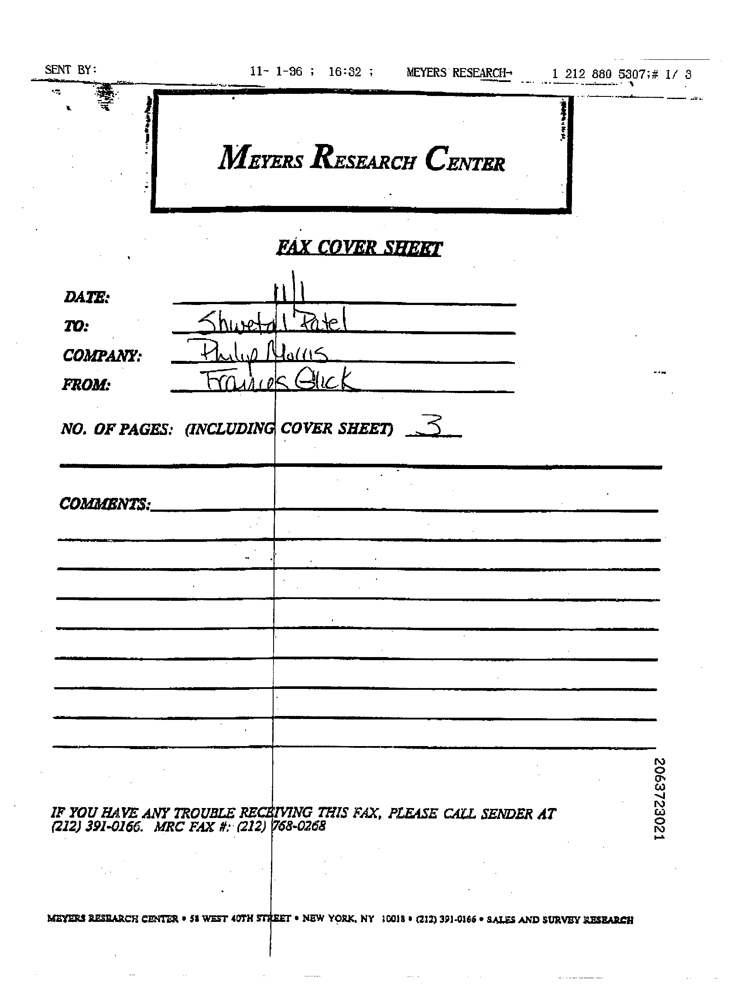 SENT BY: 11- 1-96 ; 16:32 ; MEYERS RESEARCH→ 1 212 880 5307;# 1/ 3
MEYERS RESEARCH CENTER
FAX COVER SHEET
DATE: 11/1
TO: Shwetal Patel
COMPANY: Philip Morris
FROM: Frances Glick
NO. OF PAGES: (INCLUDING COVER SHEET) 3
COMMENTS:
2063723021
IF YOU HAVE ANY TROUBLE RECEIVING THIS FAX, PLEASE CALL SENDER AT
(212) 391-0166. MRC FAX #: (212) 768-0268
MEYERS RESEARCH CENTER • 58 WEST 40TH STREET • NEW YORK, NY 10018 • (212) 391-0166 • SALES AND SURVEY RESEARCH